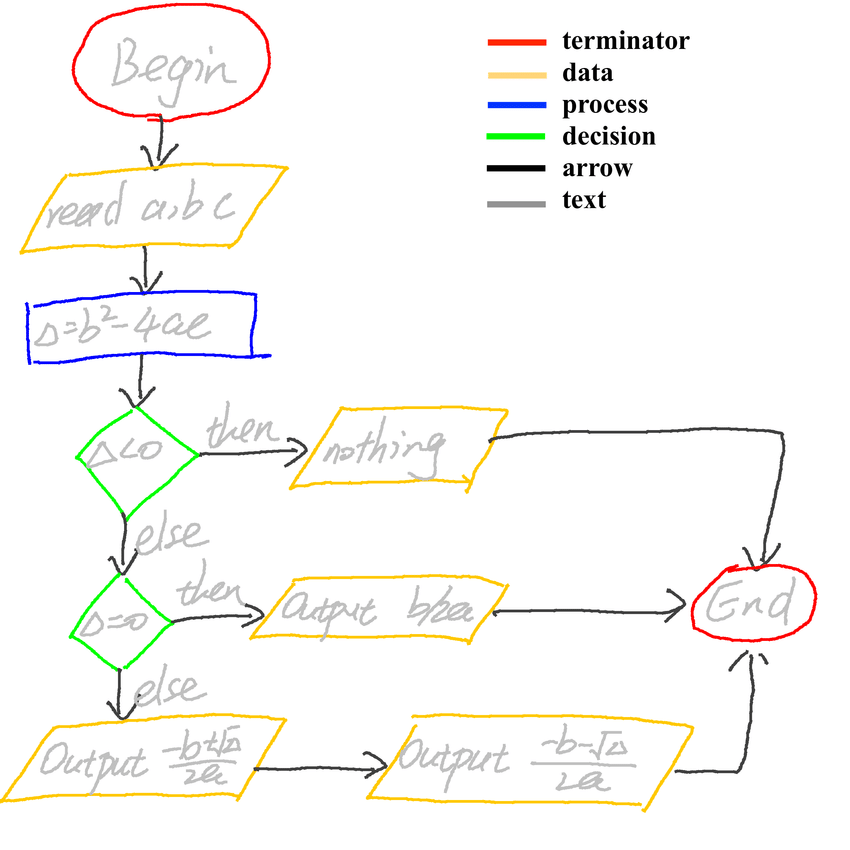 Begin
terminator
data
process
decision
arrow
text
read a,b c
Δ=b²-4ac
Δ<0
then
nothing
else
Δ=0
then
Output b/2a
End
else
Output (-b+√Δ)/2a
Output (-b-√Δ)/2a